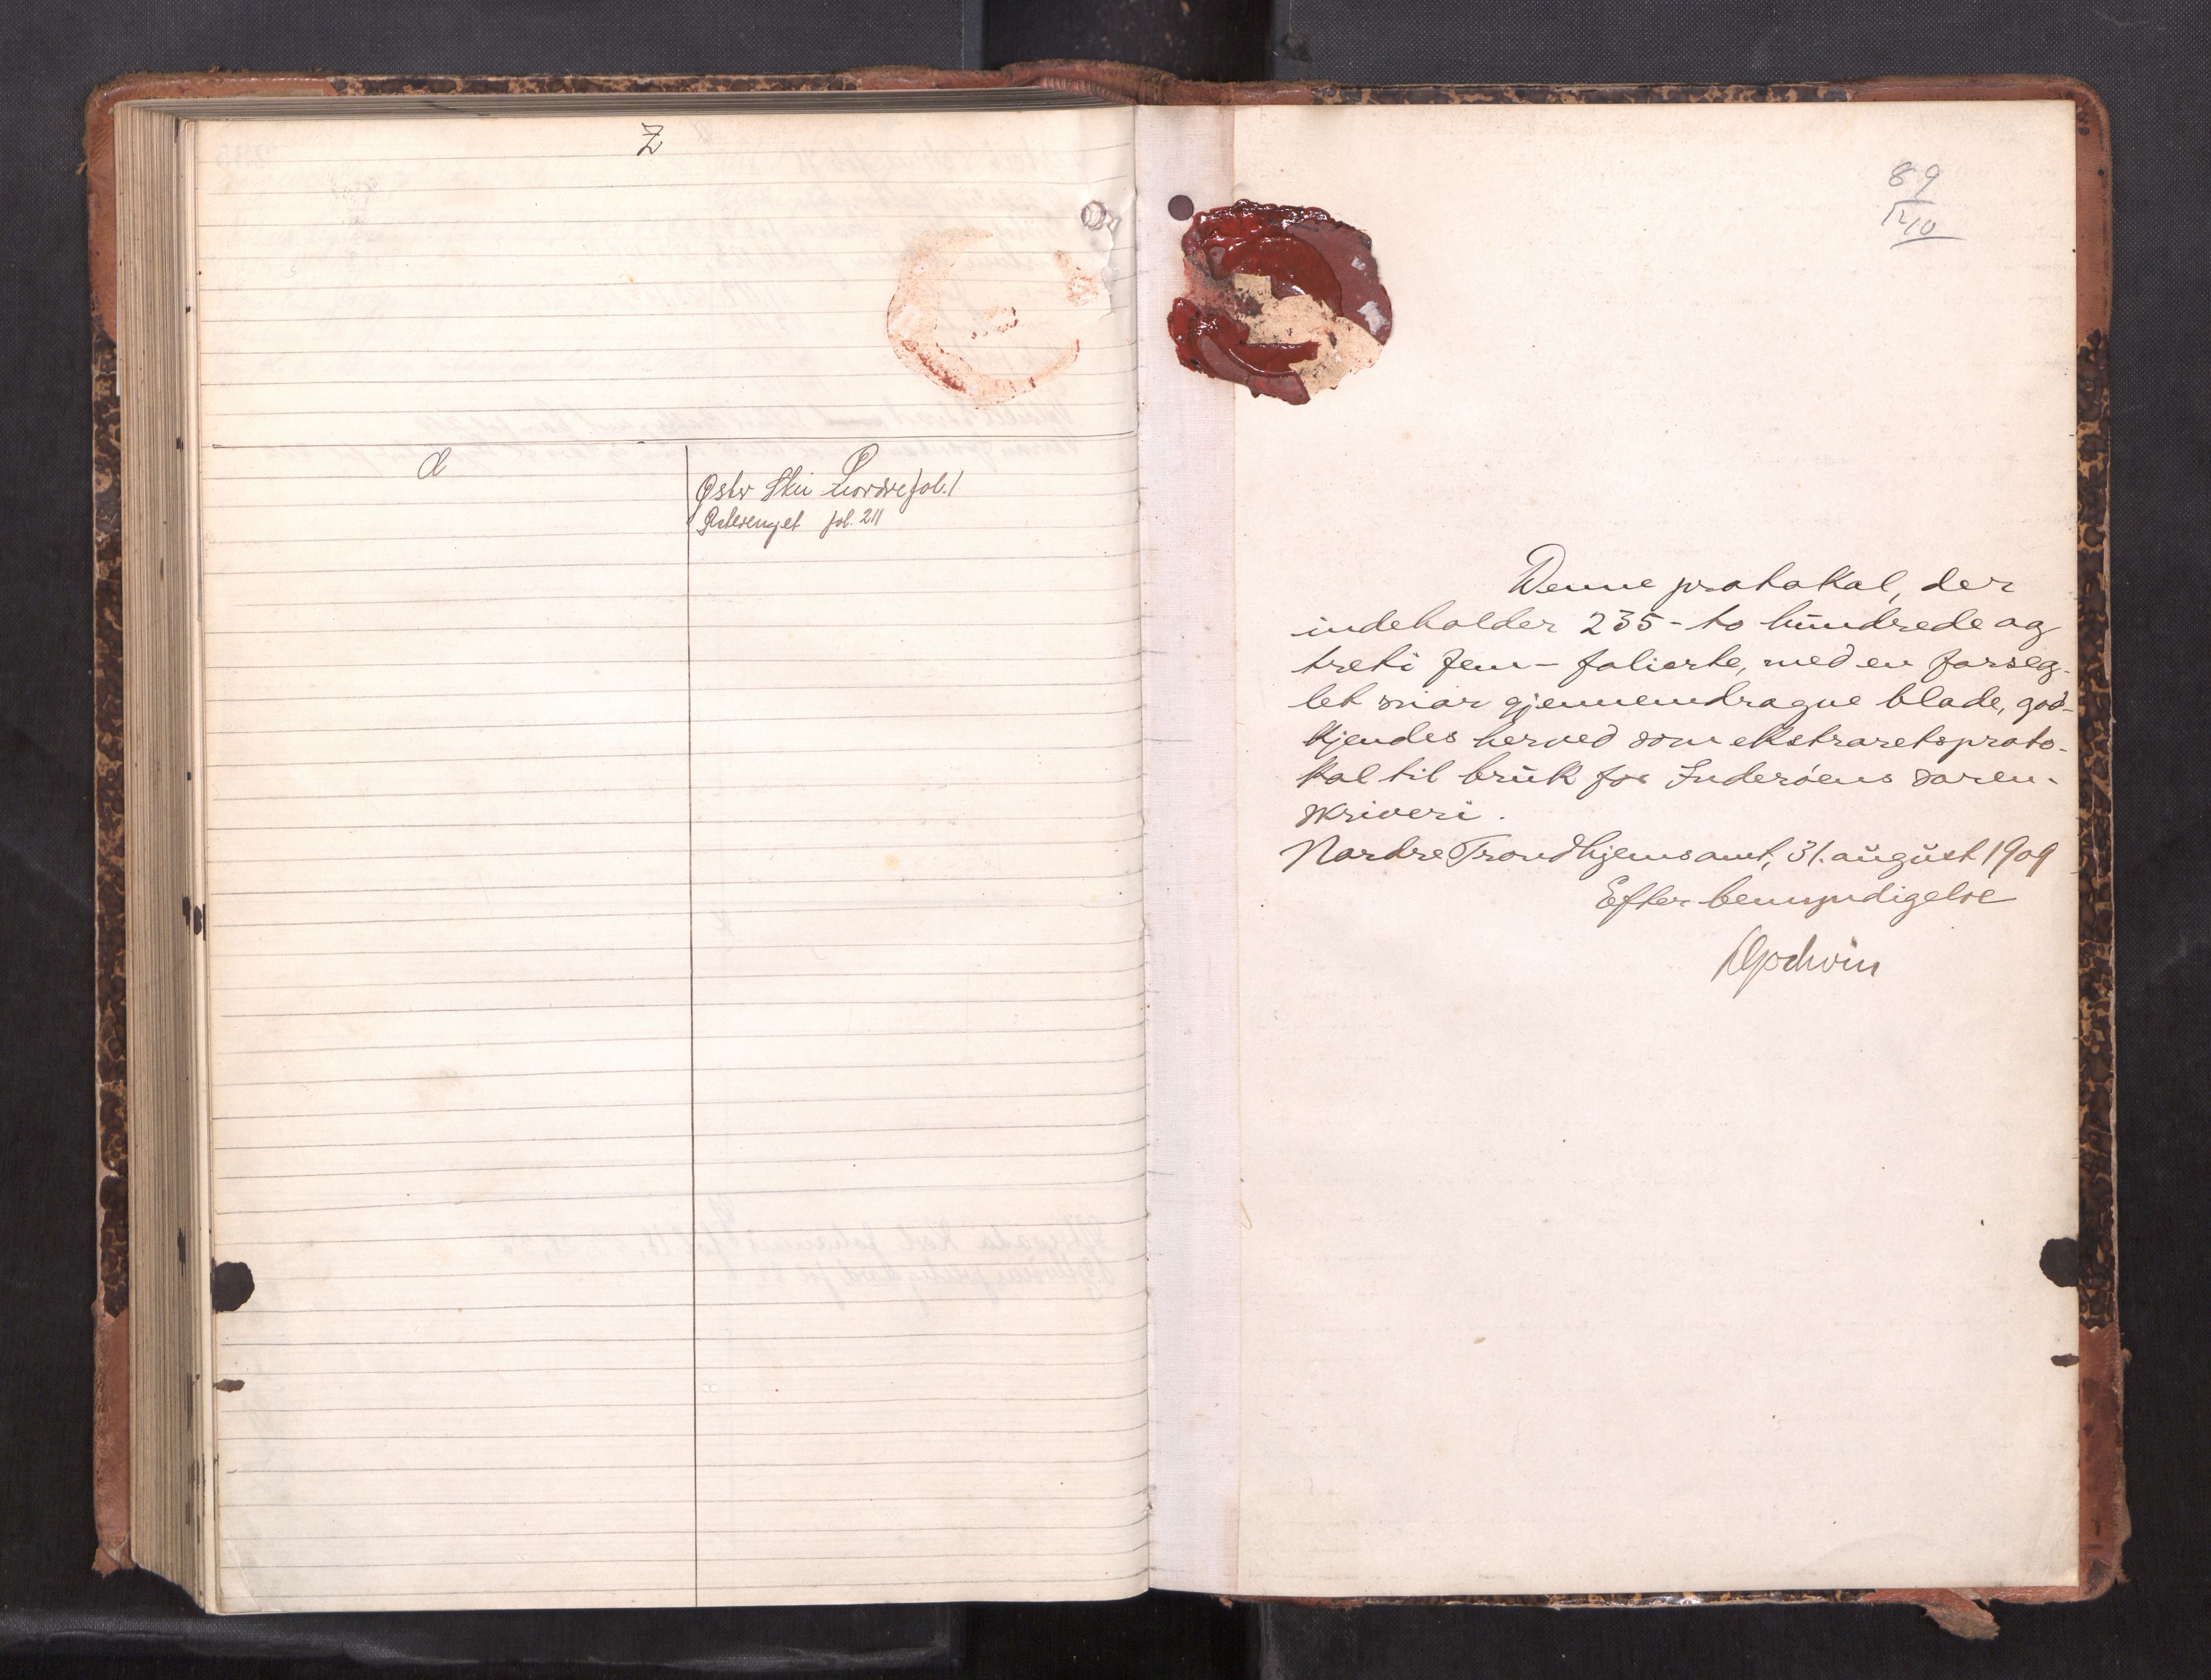 Z
Ø
Øster Skei nordre fol. 1
fol. 211
89
10
Denne protokol, der
indeholder 235 - to hundrede og
treti fem - folierte, med en forseg-
let snor gjennemdragne blade, god-
kjendes herved som ekstraretsproto-
kol til bruk for Inderøens soren-
skriveri.
Nordre Trondhjems amt, 31. august 1909
Efter bemyndigelse